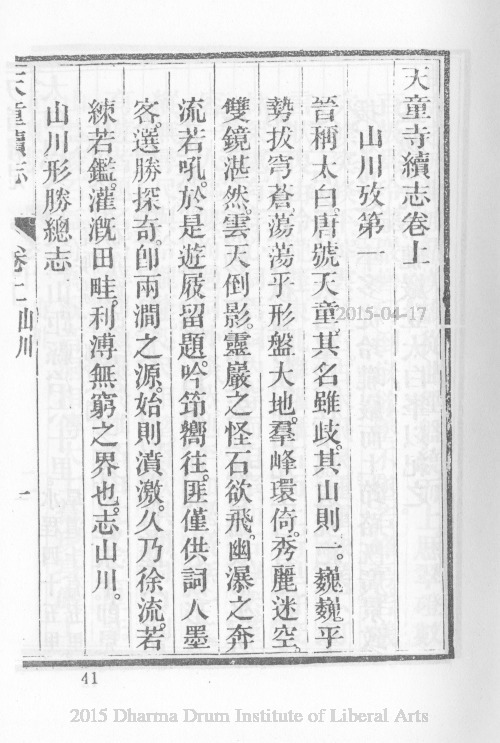 天童寺續志卷上
山川攷第一
晉稱太白。唐號天童。其名雖歧。其山則一。巍巍乎
勢拔穹蒼。蕩蕩乎形盤大地。羣峰環倚。秀麗迷空。
雙鏡湛然。雲天倒影。靈巖之怪石欲飛。幽瀑之奔
流若吼。於是遊屐留題。吟笻嚮往。匪僅供詞人墨
客。選勝探奇。卽兩澗之源。始則濆激。久乃徐流。若
練若鑑。灌溉田畦。利溥無窮之界也。志山川。
山川形勝總志
天童續志
卷上 山川
一
2015-04-17
41
2015 Dharma Drum Institute of Liberal Arts